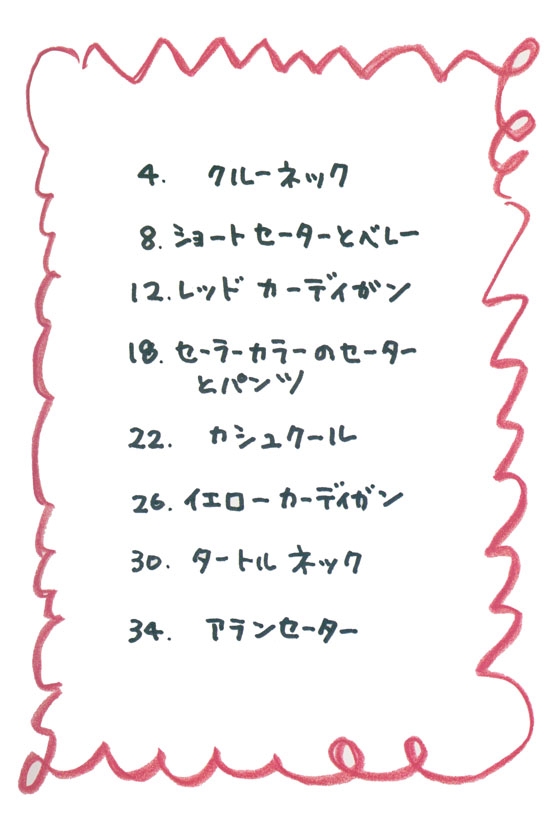 4. クルーネック
8. ショートセーターとベレー
12. レッド カーディガン
18. セーラーカラーのセーター
とパンツ
22. カシュクール
26. イエローカーディガン
30. タートル ネック
34. アランセーター